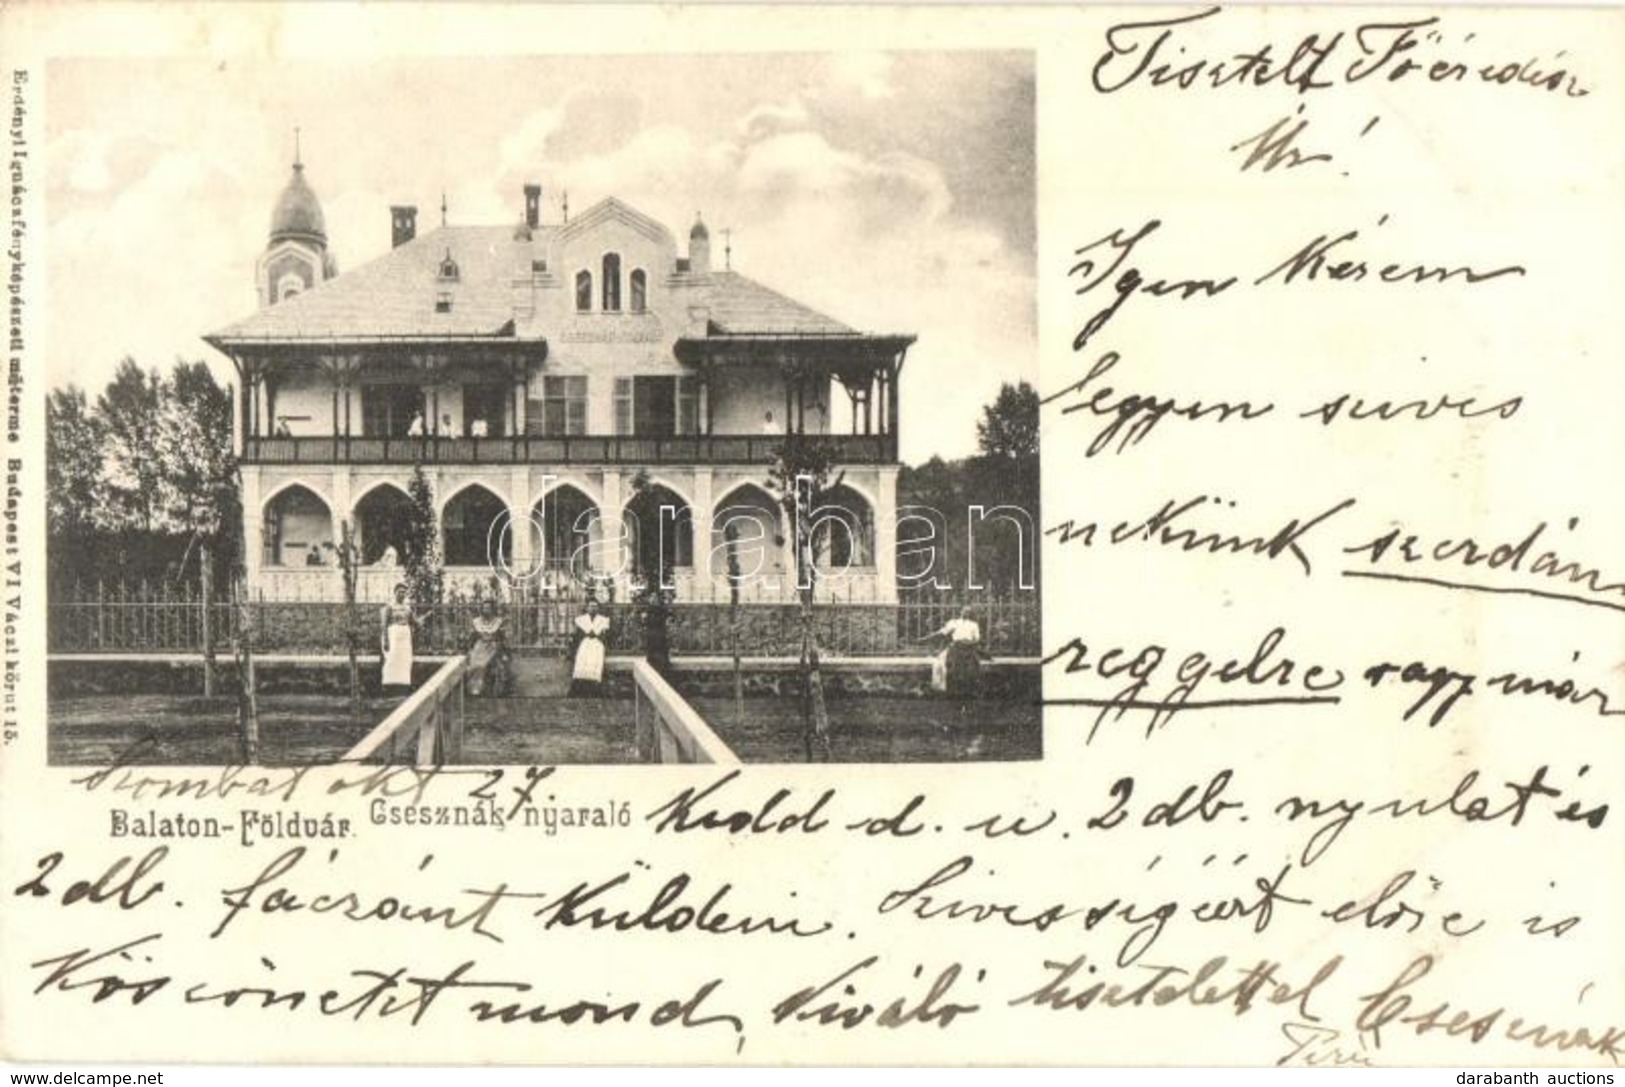 Tisztelt Főerdész
Úr!
Igen kérem
legyen szives
nekünk szerdán
reggelre vagy már
Szombat okt 27.
Kedd d. u. 2 db. nyulat és
2 db. fáczánt küldeni. Szivességéért előre is
köszönetet mond, kiváló tisztelettel Csesznák
Balaton-Földvár. Csesznák nyaraló
Erdényi Ignácz fényképészeti műterme Budapest VI Váczi körut 15.
darabanth
darabanth auctions